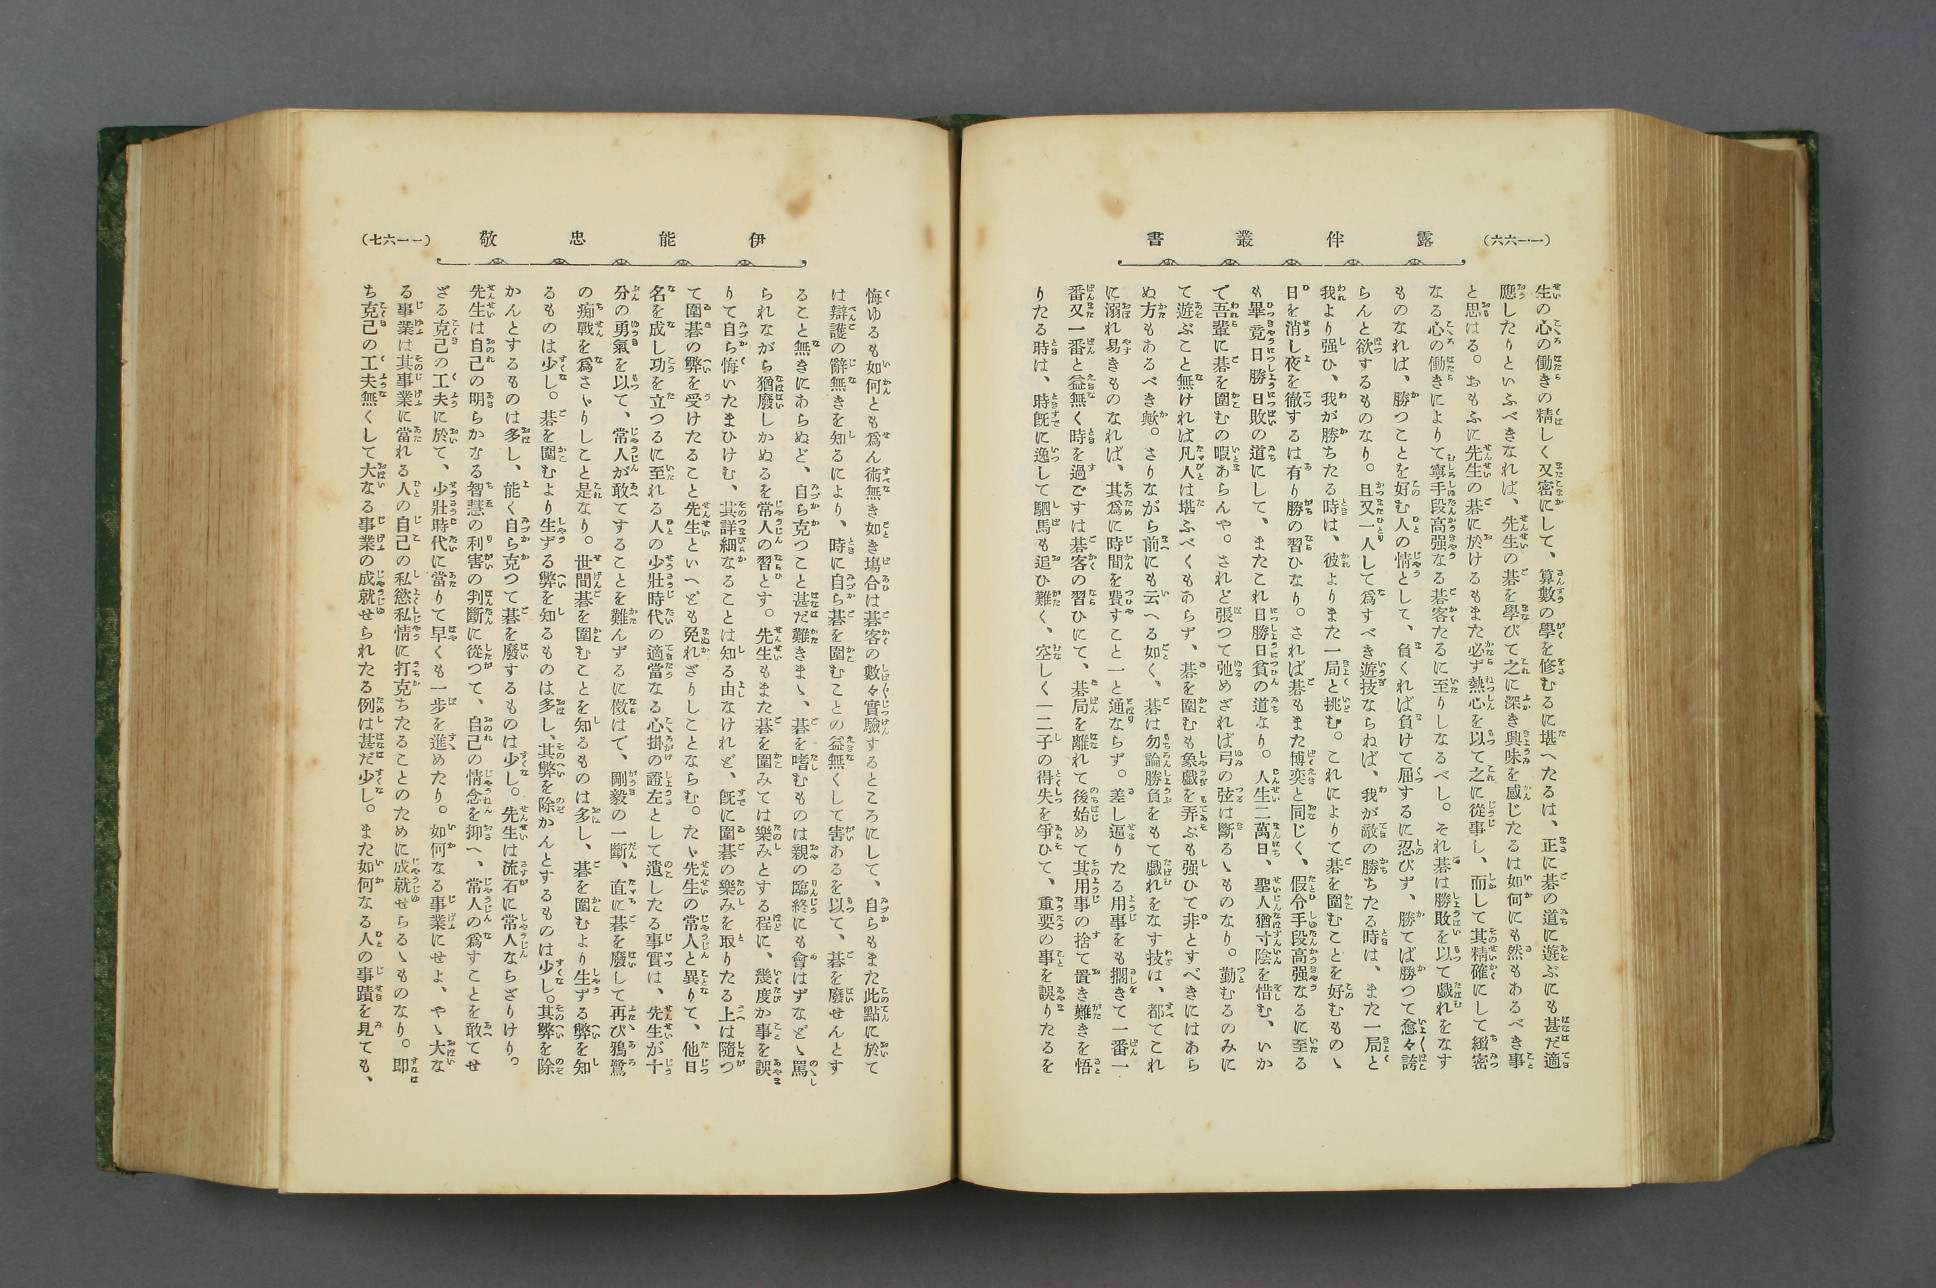 露伴叢書
(一一六六)
生の心の働きの精しく又密にして、算數の學を修むるに堪へたるは、正に碁の道に遊ぶにも甚だ適
應したりといふべきなれば、先生の碁を學びて之に深き興味を感じたるは如何にも然もあるべき事
と思はる。おもふに先生の碁に於けるもまた必ず熱心を以て之に從事し、而して其精確にして緻密
なる心の働きによりて寧手段高强なる碁客たるに至りしなるべし。それ碁は勝敗を以て戯れをなす
ものなれば、勝つことを好む人の情として、負くれば負けて屈するに忍びず、勝てば勝つて愈々誇
らんと欲するものなり。且又一人して爲すべき遊技ならねば、我が敵の勝ちたる時は、また一局と
我より强ひ、我が勝ちたる時は、彼よりまた一局と挑む。これによりて碁を圍むことを好むものゝ
日を消し夜を徹するは有り勝の習ひなり。されば碁もまた博奕と同じく、假令手段高强なるに至る
も畢竟日勝日敗の道にして、またこれ日勝日貧の道なり。人生二萬日、聖人猶寸陰を惜む、いか
で吾輩に碁を圍むの暇あらんや。されど張つて弛めざれば弓の弦は斷るゝものなり。勤むるのみに
て遊ぶこと無ければ凡人は堪ふべくもあらず、碁を圍むも象戯を弄ぶも强ひて非とすべきにはあら
ぬ方もあるべき歟。さりながら前にも云へる如く、碁は勿論勝負をもて戯れをなす技は、都てこれ
に溺れ易きものなれば、其爲に時間を費すこと一と通ならず。差し逼りたる用事をも擱きて一番一
番又一番と益無く時を過ごすは碁客の習ひにて、碁局を離れて後始めて其用事の捨て置き難きを悟
りたる時は、時旣に逸して駟馬も追ひ難く、空しく一二子の得失を爭ひて、重要の事を誤りたるを
伊能忠敬
(一一六七)
悔ゆるも如何とも爲ん術無き如き塲合は碁客の數々實驗するところにして、自らもまた此點に於て
は辯護の辭無きを知るにより、時に自ら碁を圍むことの益無くして害あるを以て、碁を廢せんとす
ること無きにあらぬど、自ら克つこと甚だ難きまゝ、碁を嗜むものは親の臨終にも會はずなどゝ罵
られながら猶廢しかぬるを常人の習とす。先生もまた碁を圍みては樂みとする程に、幾度か事を誤
りて自ら悔いたまひけむ、其詳細なることは知る由なけれど、旣に圍碁の樂みを取りたる上は隨つ
て圍碁の弊を受けたること先生といへども免れざりしことならむ。たゞ先生の常人と異りて、他日
名を成し功を立つるに至れる人の少壯時代の適當なる心掛の證左として遺したる事實は、先生が十
分の勇氣を以て、常人が敢てすることを難んずるに傚はで、剛毅の一斷、直に碁を廢して再び鴉鷺
の痴戰を爲さゞりしこと是なり。世間碁を圍むことを知るものは多し、碁を圍むより生ずる弊を知
るものは少し。碁を圍むより生ずる弊を知るものは多し、其弊を除かんとするものは少し。其弊を除
かんとするものは多し、能く自ら克つて碁を廢するものは少し。先生は流石に常人ならざりけり。
先生は自己の明らかなる智慧の利害の判斷に從つて、自己の情念を抑へ、常人の爲すことを敢てせ
ざる克己の工夫に於て、少壯時代に當りて早くも一步を進めたり。如何なる事業にせよ、やゝ大な
る事業は其事業に當れる人の自己の私慾私情に打克ちたることのために成就せらるゝものなり。卽
ち克己の工夫無くして大なる事業の成就せられたる例は甚だ少し。また如何なる人の事蹟を見ても、